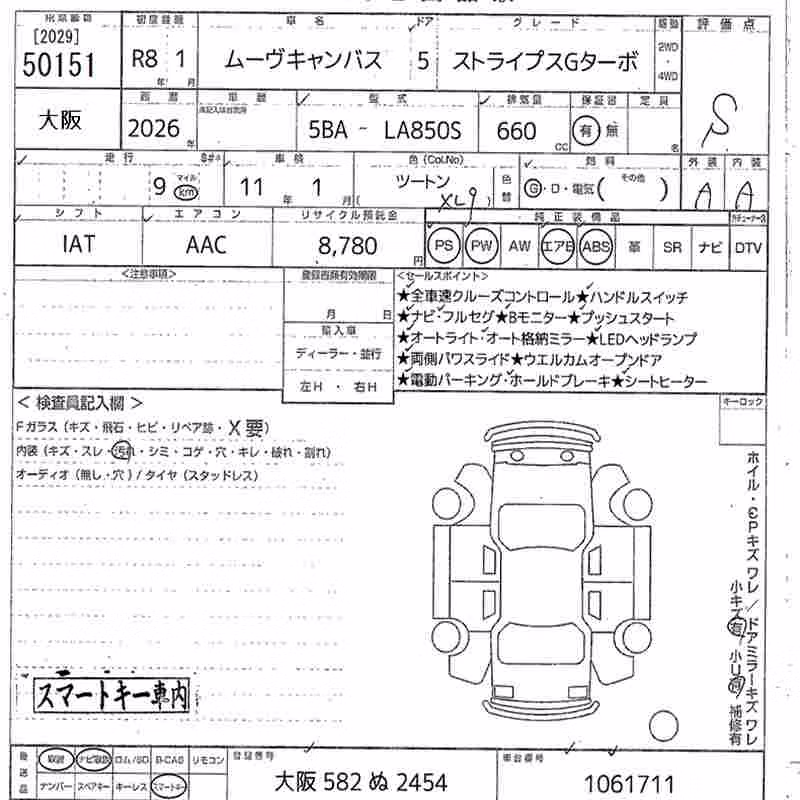 初度登録 車名 ドア グレード 駆動 評価点
[2029]
50151 R8 1 ムーヴキャンバス 5 ストライプスGターボ 2WD・4WD
年 月
S
大阪
西暦 車歴 型式 排気量 保証書 定員
2026年 5BA - LA850S 660 CC 有 無 名
走行 車検 色(Col.No) 色替 燃料 外装 内装
9 マイル km 11年 1月 ツートン (XL9) G・D・電気(その他) A A
シフト エアコン リサイクル預託金 純正装備品
IAT AAC 8,780円 PS PW AW エアB ABS 革 SR ナビ DTV
<注意事項>
月 日
輸入車
ディーラー・並行
左H ・ 右H
<セールスポイント>
★全車速クルーズコントロール★ハンドルスイッチ
★ナビ・フルセグ★Bモニター★プッシュスタート
★オートライト・オート格納ミラー★LEDヘッドランプ
★両側パワスライド★ウエルカムオープンドア
★電動パーキング・ホールドブレーキ★シートヒーター
キーロック
< 検査員記入欄 >
Fガラス(キズ・飛石・ヒビ・リペア跡・X要)
内装(キズ・スレ・汚れ・シミ・コゲ・穴・キレ・破れ・割れ)
オーディオ(無し・穴)/タイヤ(スタッドレス)
ホイル・CPキズワレ/ドアミラーキズワレ
小キズ有 小U有 補修有
スマートキー車内
後送品 取説 ナビ取説 ロム/SD B-CAS リモコン
ナンバー スペアキー キーレス スマートキー
登録番号 大阪 582 ぬ 2454
車台番号 1061711